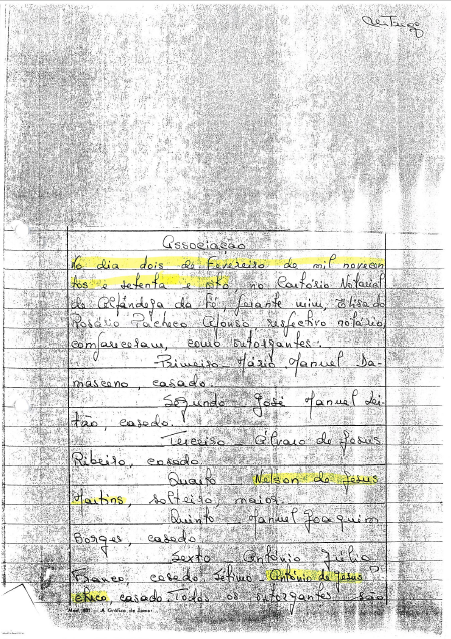 Associação
No dia dois de Fevereiro de mil novecen
tos e setenta e oito no Cartório Notarial
de Alfândega da Fé, perante mim, Elisa do
Rosário Pacheco Afonso, respectivo notário,
compareceram, como outorgantes:
Primeiro - Mário Manuel Da-
masceno, casado.
Segundo - José Manuel Lei-
tão, casado.
Terceiro - Álvaro de Jesus
Ribeiro, casado
Quarto Nelson de Jesus
Martins, solteiro, maior
Quinto - Manuel Joaquim
Borges, casado
Sexto António Júlio
Franco, casado. Sétimo - António de Jesus
casado. Todos os outorgantes são
A Gráfica de Tomar